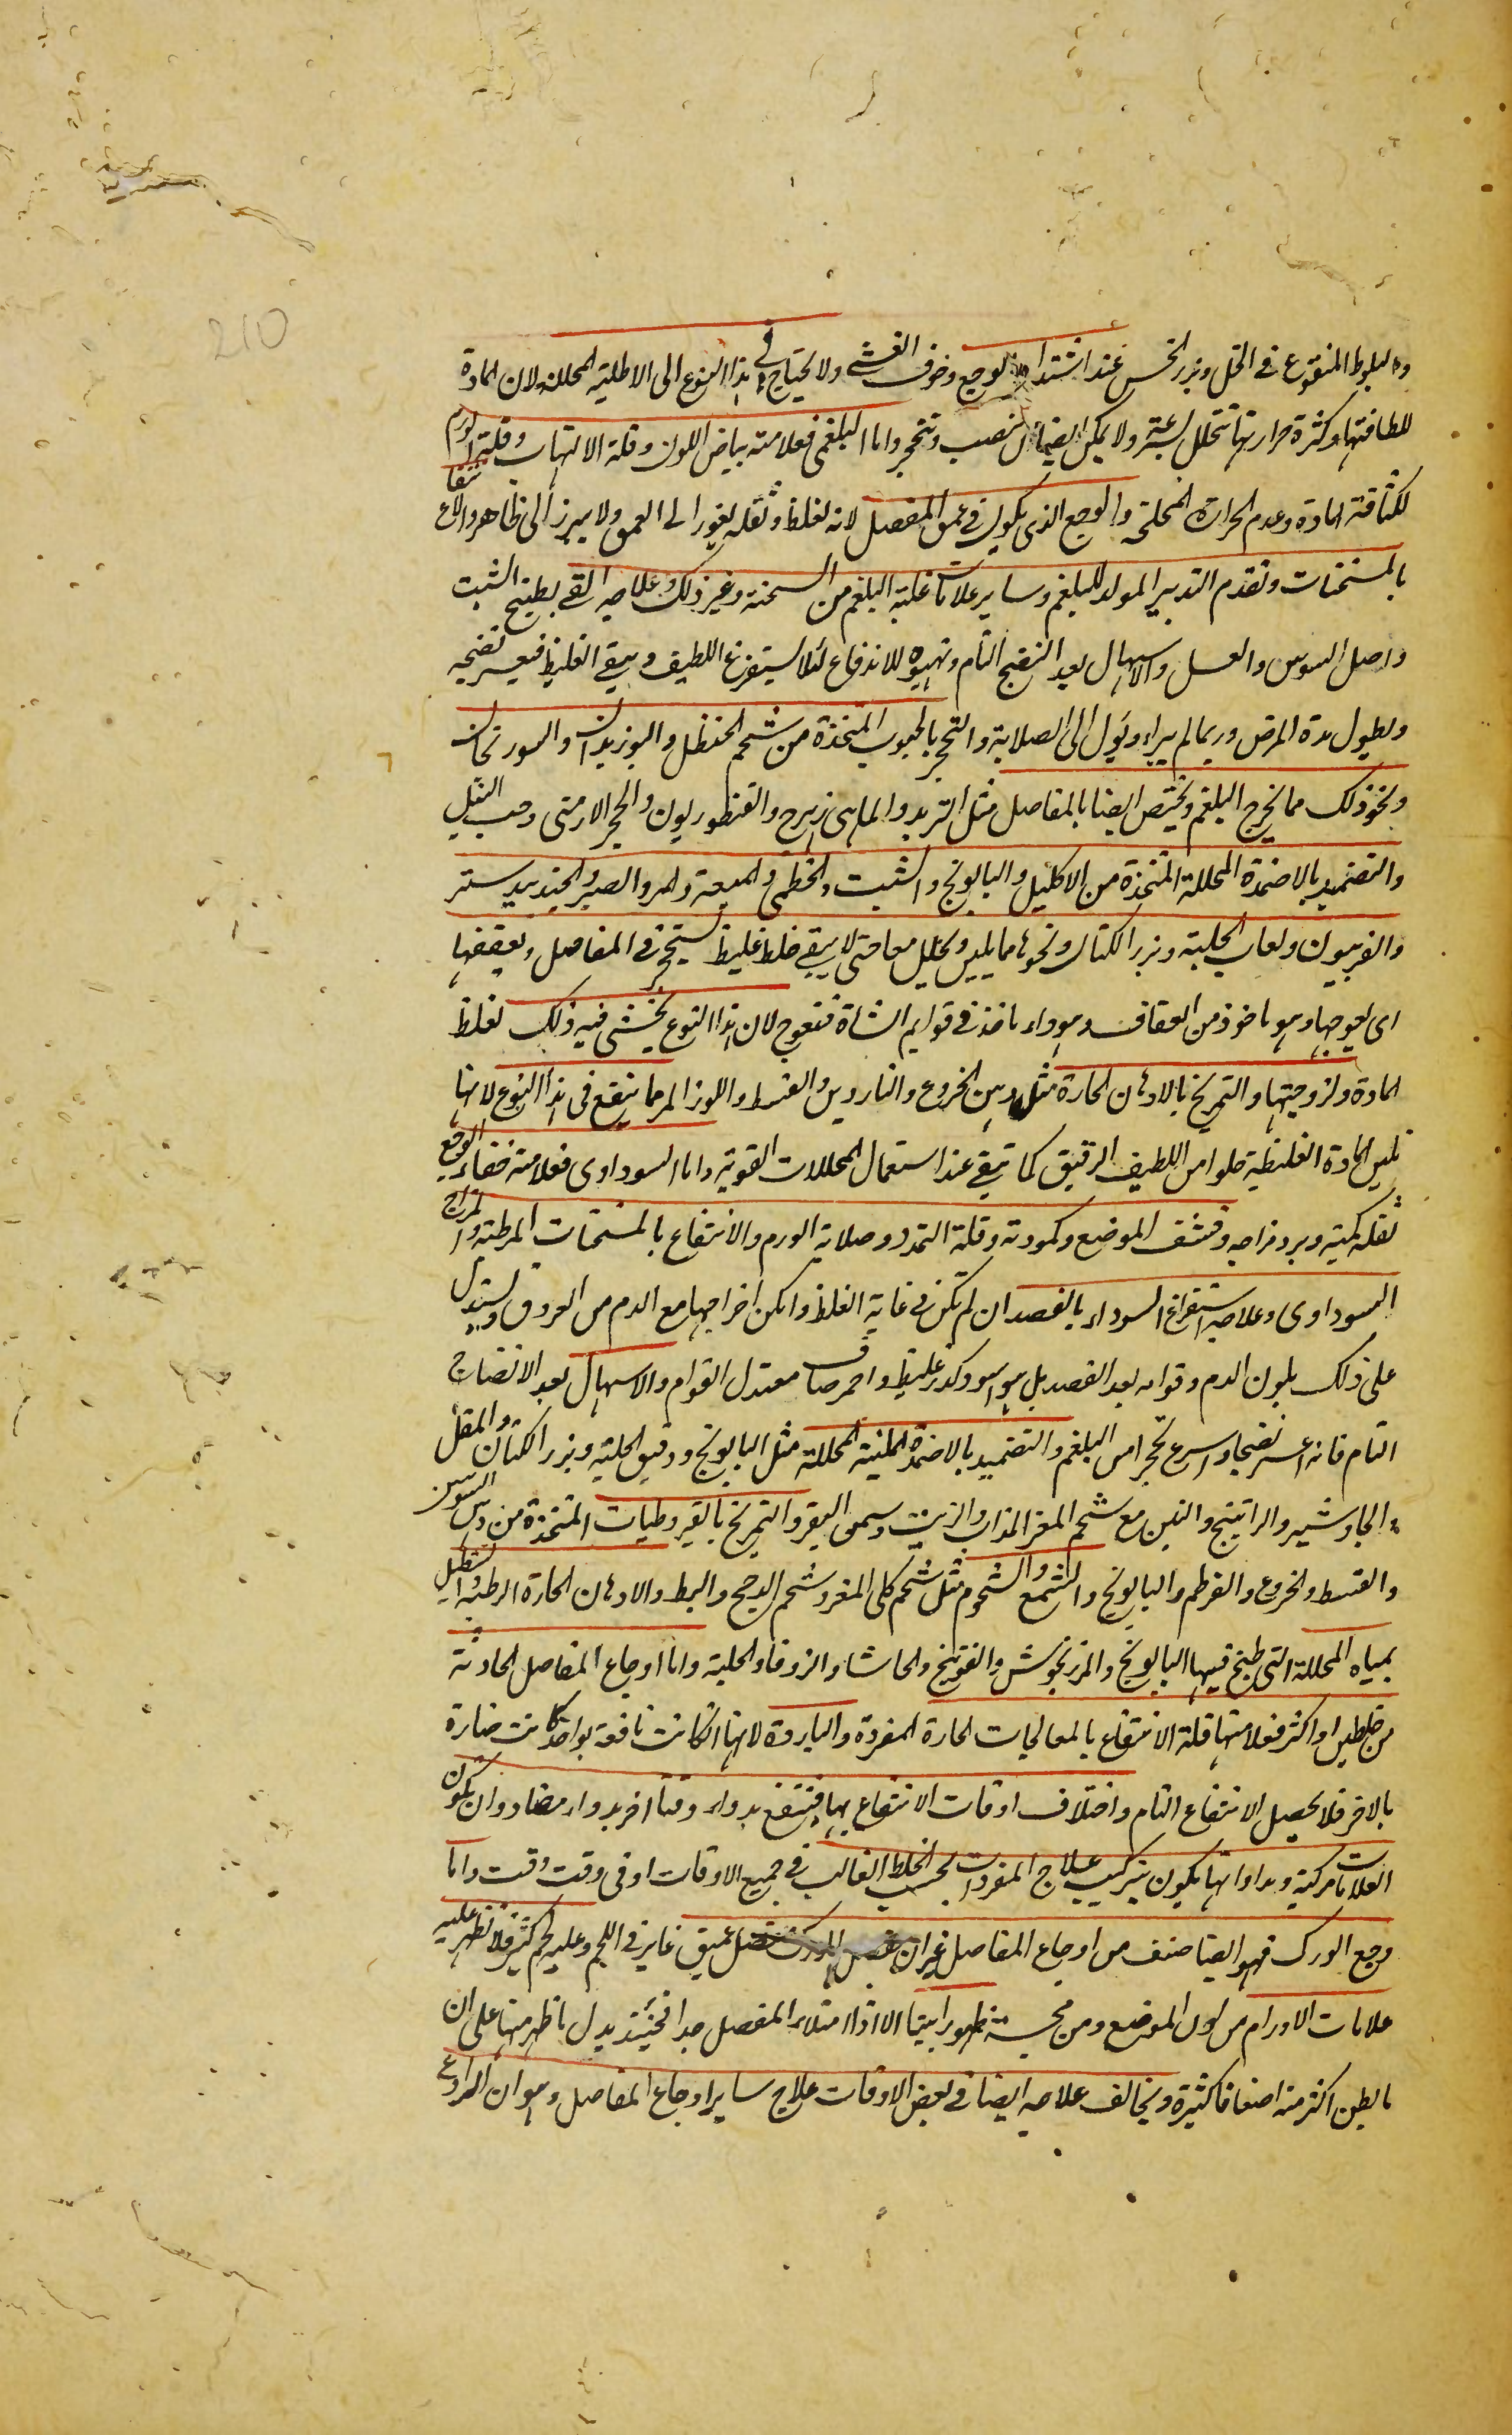 210
والبلوط المنقوع فى الخل وبزر الخس عند اشتداد الوجع وخوف الغشى ولا يحتاج فى هذا النوع الى الاطلية المحللة لان المادة
للطافتها وكثرة حرارتها تتحلل بسرعة ولا يمكن ايضا ان تنصب وتتحجر واما البلغمى فعلامته بياض اللون وقلة الالتهاب وقلة الورم
لكثافة المادة وعدم الحرارة المخلخلة والوجع الذى يكون فى عمق المفصل لانه لغلظه وثقله يغور الى العمق ولا يبرز الى ظاهر والانتفاع
بالمسخنات وتقدم التدبير المولد للبلغم وساير علامات غلبة البلغم من السحنة وغير ذلك وعلاجه القى بطبيخ الشبت
واصل السوس والعسل والاسهال بعد النضج التام وتهيوه للاندفاع لئلا يستفرغ اللطيف ويبقى الغليظ فيعسر نضجه
ويطول مدة المرض وربما لم يبراء ويؤل الى الصلابة والتحجر بالحبوب المتخذة من شحم الحنظل والبوزيدان والسورنجان
ونحو ذلك مما يخرج البلغم ويختص ايضا بالمفاصل مثل التربد والماهى زهرج والقنطوريون والحجر الارمنى وحب النيل
والتضميد بالاضمدة المحللة المتخذة من الاكليل والبابونج والشبت والخطمى والميعة والمر والصبر والجندبيدستر
والفربيون ولعاب الحلبة وبزر الكتان ونحوها مما يلين ويحلل معا حتى لا يبقى خلط غليظ يستحجر فى المفاصل ويعقفها
اى يعوجها وهو ماخوذ من العقاف وهو داء ياخذ فى قوايم الشاة فتعوج لان هذا النوع يخشى فيه ذلك لغلظ
المادة ولزوجتها والتمريخ بالادهان الحارة مثل دهن الخروع والناردين والقسط واللوز المر مما ينفع فى هذا النوع لانها
تلين المادة الغليظة خلوا من اللطيف الرقيق كما تبقى عند استعمال المحللات القوية واما السوداوى فعلامته خفاء الوجع
لقلة كميته وبرد مزاجه وقشف الموضع وكمودته وقلة التمدد وصلابة الورم والانتفاع بالمسخنات المرطبة والمزاج
السوداوى وعلاجه استفراغ السوداء بالفصد ان لم تكن فى غاية الغلظ وامكن اخراجها مع الدم من العروق ويستدل
على ذلك بلون الدم وقوامه بعد الفصد هل هو اسود كدر غليظ او احمر صاف معتدل القوام والاسهال بعد الانضاج
التام فانه اعسر نضجا واسرع تحجرا من البلغم والتضميد بالاضمدة الملينة المحللة مثل البابونج ودقيق الحلبة وبزر الكتان والمقل
والجاوشير والراتينج والتين مع شحم المعز المذاب والزيت وسمن البقر والتمريخ بالقيروطيات المتخذة من دهن السوسن
والقسط والخروع والقرطم والبابونج والشمع والشحوم مثل شحم كلى المعز وشحم الدجاج والبط والادهان الحارة الرطبة والتنطيل
بمياه المحللة التى طبخ فيها البابونج والمرزنجوش والفوتنج والحاشا والزوفا والحلبة واما اوجاع المفاصل الحادثة
من خلطين او اكثر فعلامتها قلة الانتفاع بالمعالجات الحارة المفردة والباردة لانها ان كانت نافعة بواحد كانت ضارة
بالاخر فلا يحصل الانتفاع التام واختلاف اوقات الانتفاع بها فينتفع بدواء وقتا اخر بدواء مضاد وان يكون
العلامات مركبة ومداواتها يكون بتركيب علاج المفردات بحسب الخلط الغالب فى جميع الاوقات او فى وقت وقت واما
وجع الورك فهو ايضا صنف من اوجاع المفاصل غير ان مفصل الورك مفصل عميق غاير فى اللحم وعليه لحم كثير فلا تظهر عليه
علامات الاورام من لون الموضع ومن مجسته ظهورا بينا الا اذا امتلاء المفصل جدا فحينئذ يدل ما ظهر منها على ان
ما بطن اكثر منه اضعافا كثيرة ويخالف علاجه ايضا فى بعض الاوقات علاج ساير اوجاع المفاصل وهو ان الروادع